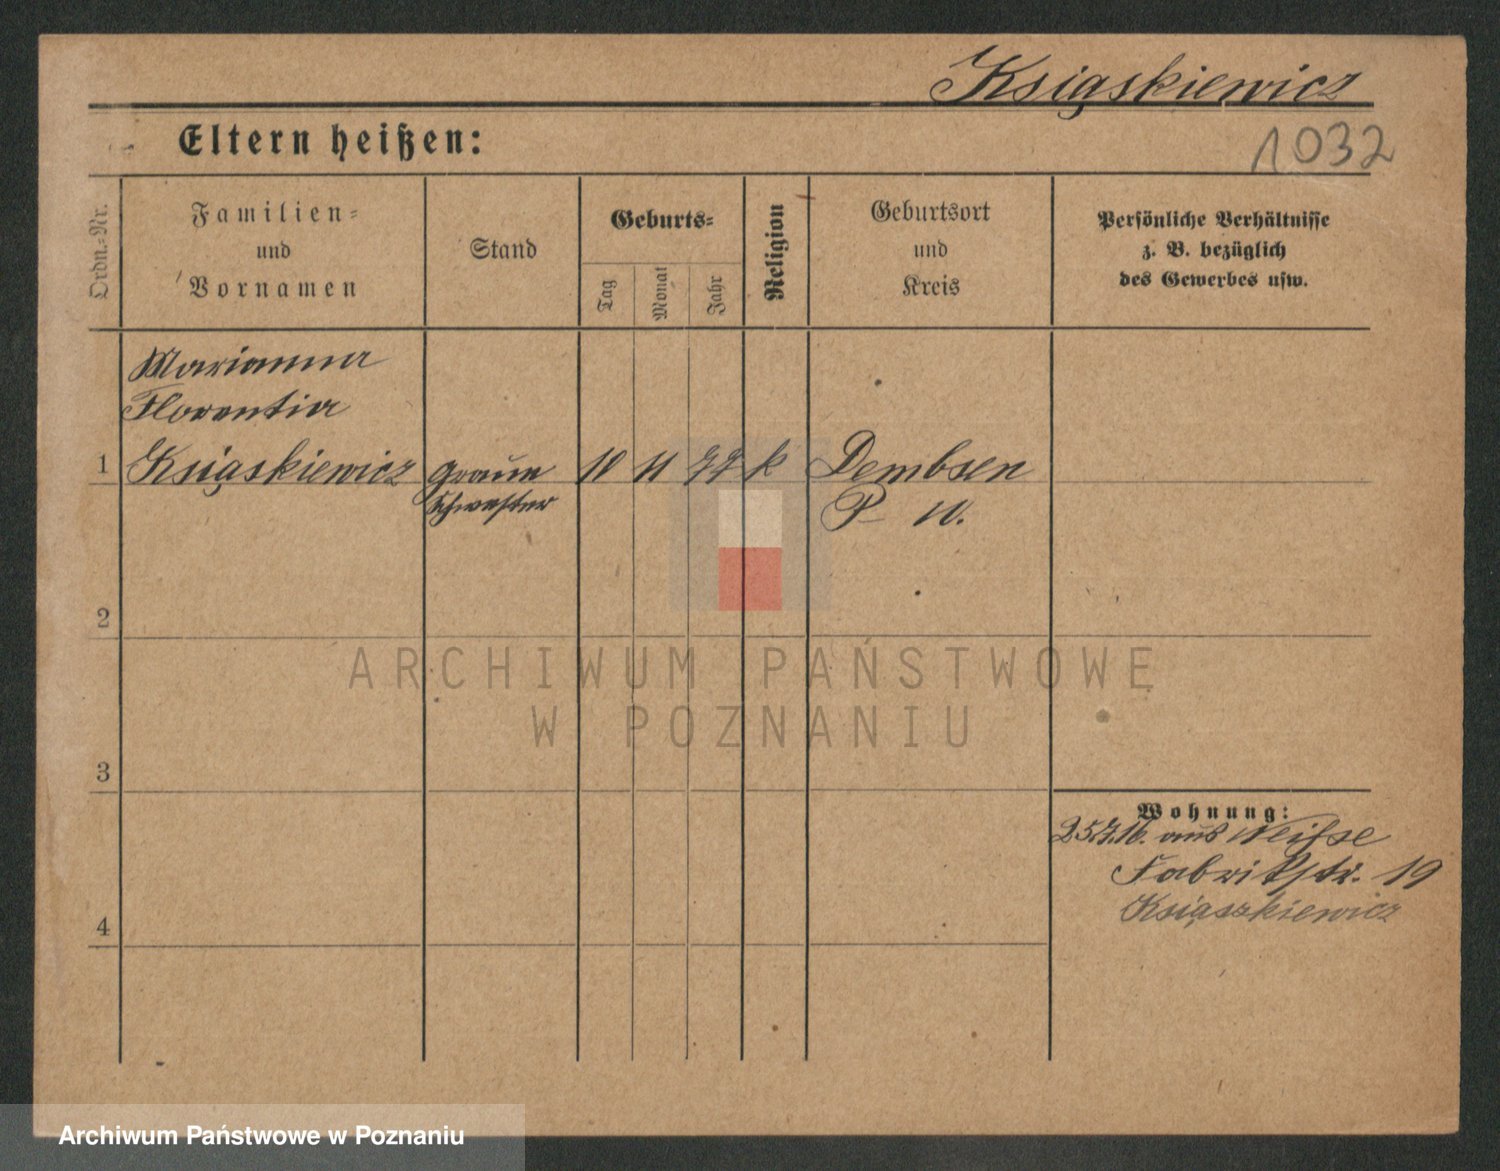 Ksiąskiewicz
Eltern heißen:
1032
Ordn.-Nr.
Familien-
und
Vornamen
Stand
Geburts-
Tag
Monat
Jahr
Religion
Geburtsort
und
Kreis
Persönliche Verhältnisse
z. B. bezüglich
des Gewerbes usw.
Marianna
Florentia
1 Ksiąskiewicz graue 10 11 77 k Dembsen
Schwester P W.
2
ARCHIWUM PAŃSTWOWE
W POZNANIU
3
Wohnung:
25.7.16. aus Neisse
Fabrikstr. 19
Książkiewicz
4
Archiwum Państwowe w Poznaniu